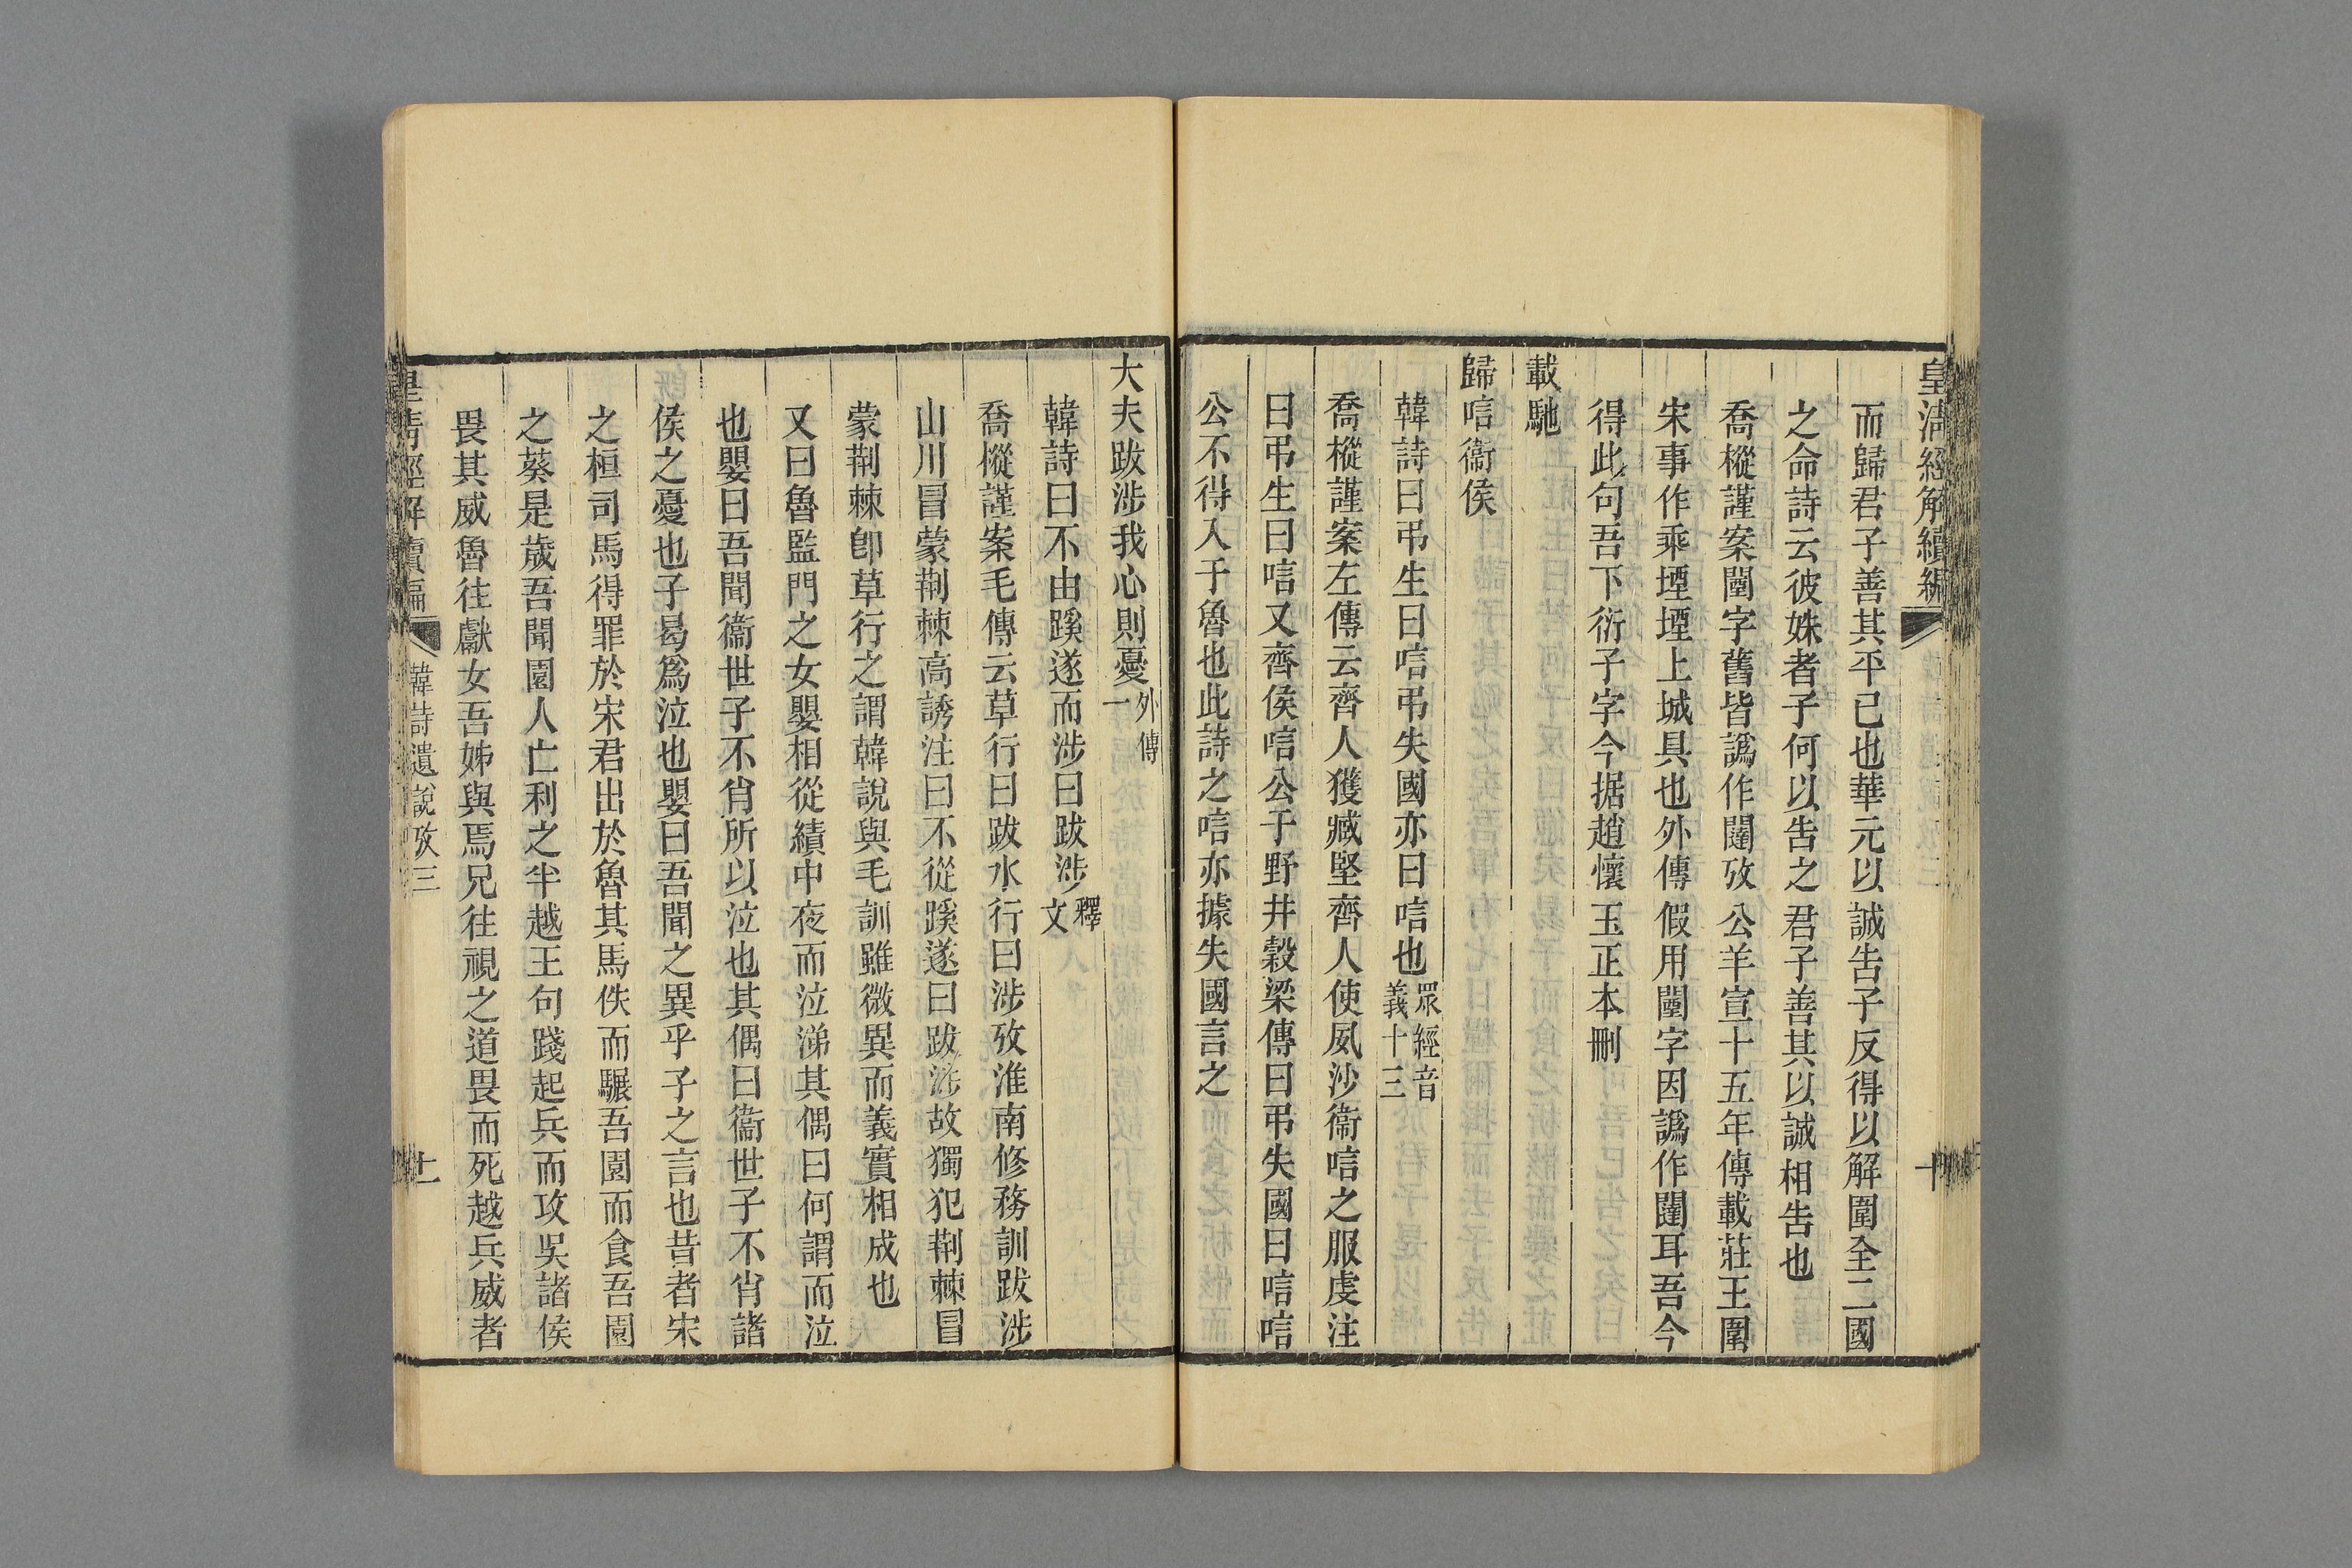 皇清經解續編
十
而歸君子善其平已也華元以誠告子反得以解圍全二國
之命詩云彼姝者子何以告之君子善其以誠相告也
喬樅謹案闉字舊皆譌作闥攷公羊宣十五年傳載莊王圍
宋事作乘堙堙上城具也外傳假用闉字因譌作闥耳吾今
得此句吾下衍子字今据趙懷玉正本刪
載馳
歸唁衞侯
韓詩曰弔生曰唁弔失國亦曰唁也眾經音義十三
喬樅謹案左傳云齊人獲臧堅齊人使夙沙衞唁之服虔注
曰弔生曰唁又齊侯唁公于野井穀梁傳曰弔失國曰唁唁
公不得入于魯也此詩之唁亦據失國言之
大夫跋涉我心則憂外傳一
韓詩曰不由蹊遂而涉曰跋涉釋文
喬樅謹案毛傳云草行曰跋水行曰涉攷淮南修務訓跋涉
山川冒蒙荆棘高誘注曰不從蹊遂曰跋涉故獨犯荆棘冒
蒙荆棘卽草行之謂韓說與毛訓雖微異而義實相成也
又曰魯監門之女嬰相從績中夜而泣涕其偶曰何謂而泣
也嬰曰吾聞衞世子不肖所以泣也其偶曰衞世子不肖諸
侯之憂也子曷爲泣也嬰曰吾聞之異乎子之言也昔者宋
之桓司馬得罪於宋君出於魯其馬佚而驅吾園而食吾園
之葵是歲吾聞園人亡利之半越王句踐起兵而攻吳諸侯
畏其威魯往獻女吾姊與焉兄往視之道畏而死越兵威者
皇清經解續編
韓詩遺說攷三
十一